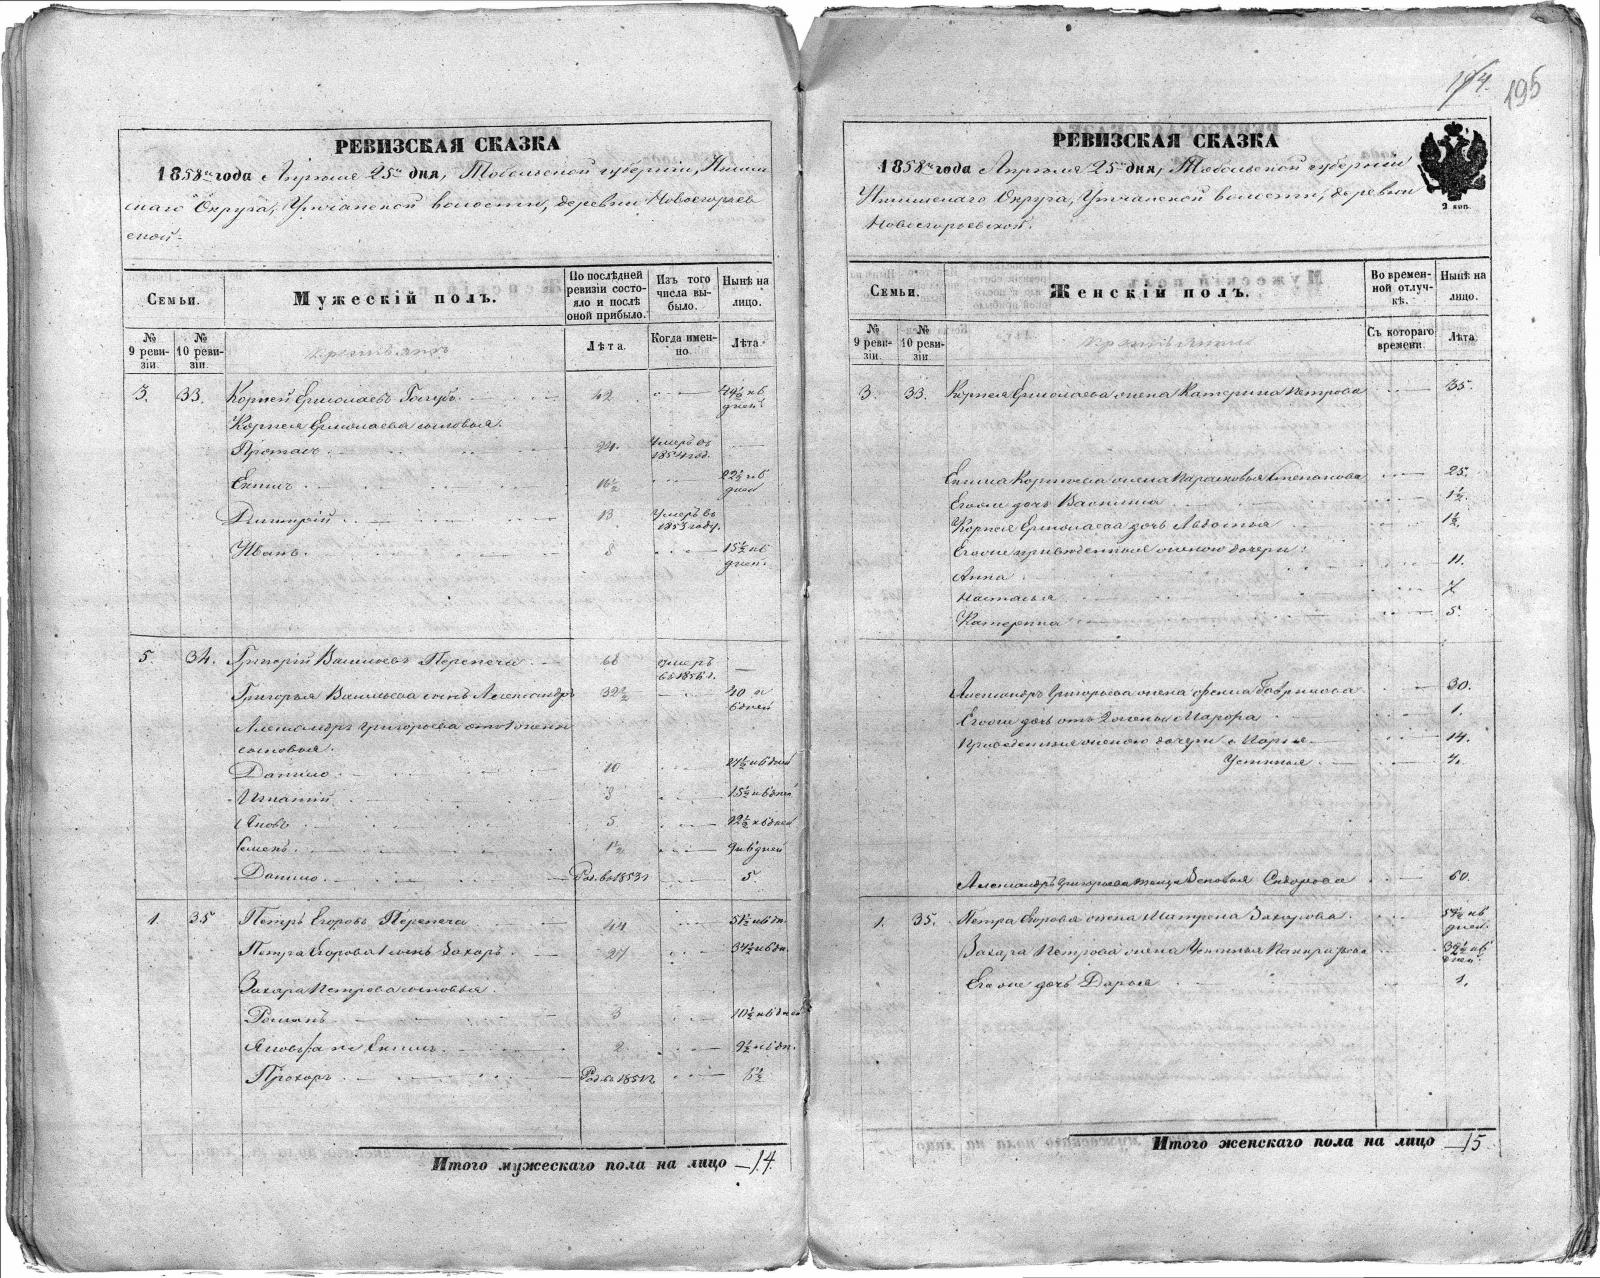 194. 195
РЕВИЗСКАЯ СКАЗКА
1858го года Апреля 25го дня, Тобольской губернiи, Ишим
скаго Округа, Утчанской волости, деревни Новоегорьев
ской.
Семьи.
Мужескiй полъ.
По послѣдней ревизiи состояло и послѣ оной прибыло.
Изъ того числа выбыло.
Нынѣ на лицо.
№ 9 ревизiи.
№ 10 ревизiи.
Лѣта.
Когда именно.
Лѣта.
3. 33. Корней Ермолаевъ Голубъ. 42 49½ и 6 дней.
Корнея Ермолаева сыновья.
Протас 24. Умеръ въ 1854 год.
Екимъ 16½ 22½ и 6 дней
Дмитрiй 13 Умеръ въ 1853 году.
Иванъ. 8 15½ и 6 дней.
5. 34. Григорiй Васильевъ Перепеча 68 умеръ въ 1856 г.
Григорья Васильева сынъ Александръ 32½ 40 и 6 дней
Александръ Григорьева отъ 1 жены
сыновья.
Данило 10 и 6 дней
Игнатiй 8 15½ и 6 дней
Яковъ 5 12½ и 6 дней
Семенъ. 1½ 9 и 6 дней
Данило Род. въ 1853 г 5
1. 35 Петръ Егоровъ Перепеча 44 51½ и 6 дн.
Петра Егорова 1 сынъ Захаръ 27 34½ и 6 дн.
Захара Петрова сыновья.
Романъ 3 10½ и 6 дней
Яковъ, а не Екимъ 2 9½ и 6 дн.
Прохоръ Род. въ 1851 г 6½
Итого мужескаго пола на лицо 14.
РЕВИЗСКАЯ СКАЗКА
1858го года Апреля 25го дня, Тобольской губернiи
Ишимскаго Округа, Утчанской волости, деревни
Новоегорьевской.
2 коп.
Семьи.
Женскiй полъ.
Во временной отлучкѣ.
Нынѣ на лицо.
№ 9 ревизiи.
№ 10 ревизiи.
Съ котораго времени.
Лѣта.
3 33. Корнея Ермолаева жена Катерина Петрова 35.
Екима Корнѣева жена Парасковья Степанова 25.
Егоже дочь Василиса 1½.
Корнея Ермолаева дочь Авдотья 1½.
Егоже приведенныя женою дочери:
Анна 11.
Настасья 7
Катерина 5
Александръ Григорьева жена Гаврилова 30.
Егоже дочь отъ 2 жены 1.
Приведенныя женою дочери Марья 14.
Устинья 4.
Александръ Григорьева теща Сидорова 60.
1. 35. Петра Егорова жена Матрена Захарова 5 и 6 дней.
Захара Петрова жена Устинья 32½ и 6 дней.
Егоже дочь Дарья 1.
Итого женскаго пола на лицо 15